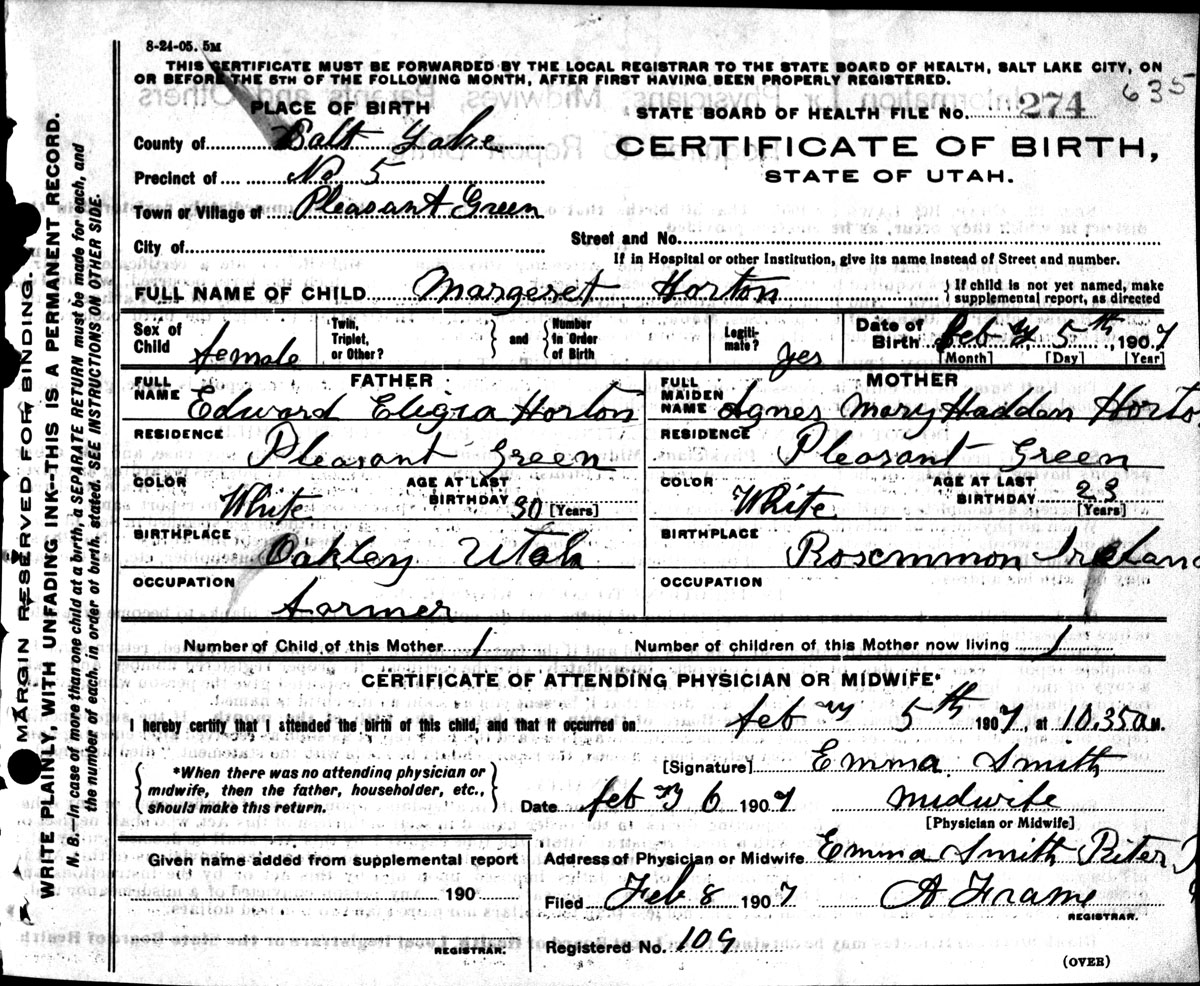 8-24-05. 5M
THIS CERTIFICATE MUST BE FORWARDED BY THE LOCAL REGISTRAR TO THE STATE BOARD OF HEALTH, SALT LAKE CITY, ON
OR BEFORE THE 5TH OF THE FOLLOWING MONTH, AFTER FIRST HAVING BEEN PROPERLY REGISTERED.
635
PLACE OF BIRTH
STATE BOARD OF HEALTH FILE NO. 274
County of Salt Lake
CERTIFICATE OF BIRTH,
STATE OF UTAH.
Precinct of No 5
Town or Village of Pleasant Green
City of
Street and No.
If in Hospital or other Institution, give its name instead of Street and number.
FULL NAME OF CHILD Margeret Horton } If child is not yet named, make supplemental report, as directed
Sex of Child female
Twin, Triplet, or Other? } and { Number in Order of Birth
Legitimate? yes
Date of Birth Feby 5th, 1907
[Month] [Day] [Year]
FATHER
MOTHER
FULL NAME Edward Eligia Horton
FULL MAIDEN NAME Agnes Mary Hadden Horto
RESIDENCE Pleasant Green
RESIDENCE Pleasant Green
COLOR White AGE AT LAST BIRTHDAY 30 [Years]
COLOR White AGE AT LAST BIRTHDAY 23 [Years]
BIRTHPLACE Oakley Utah
BIRTHPLACE Roscmmon Ireland
OCCUPATION farmer
OCCUPATION
Number of Child of this Mother 1
Number of children of this Mother now living 1
CERTIFICATE OF ATTENDING PHYSICIAN OR MIDWIFE*
I hereby certify that I attended the birth of this child, and that it occurred on feby 5th 1907, at 10.35 a M.
*When there was no attending physician or
midwife, then the father, householder, etc.,
should make this return.
[Signature] Emma Smith
Date feby 6 1907 midwife
[Physician or Midwife]
Given name added from supplemental report
190
REGISTRAR.
Address of Physician or Midwife Emma Smith Riter
Filed Feb 8 1907 A Frame
REGISTRAR.
Registered No. 109
(OVER)
MARGIN RESERVED FOR BINDING.
WRITE PLAINLY, WITH UNFADING INK--THIS IS A PERMANENT RECORD.
N. B.—In case of more than one child at a birth, a SEPARATE RETURN must be made for each, and
the number of each, in order of birth, stated. SEE INSTRUCTIONS ON OTHER SIDE.